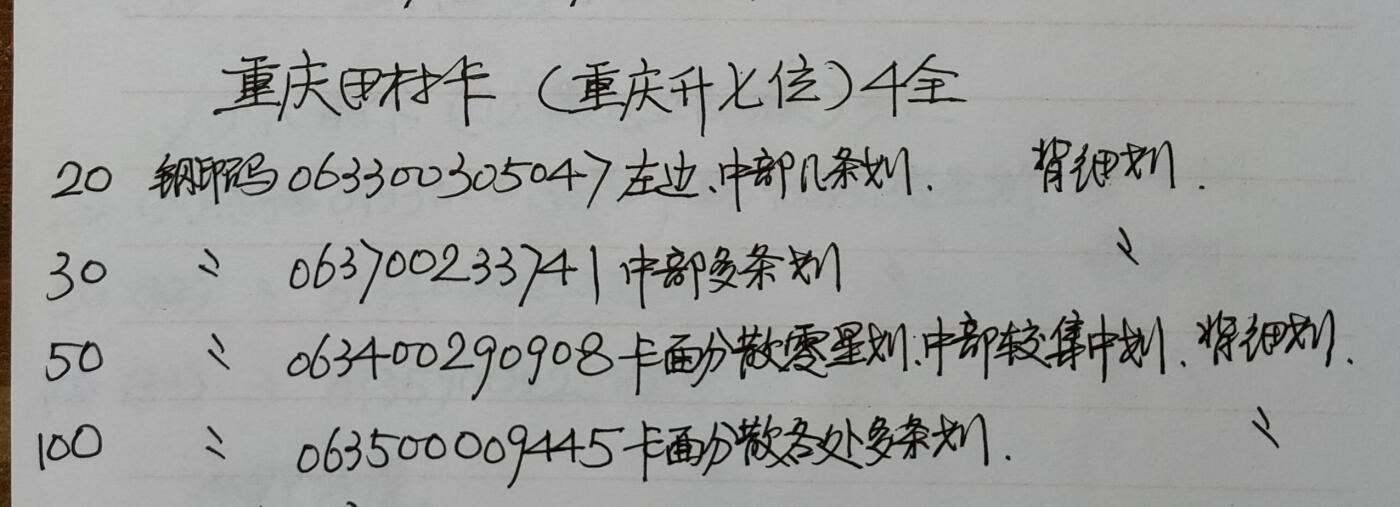 重庆田村卡（重庆升七位）4全
20 钢印码 063300305047 左边、中部几条划. 背细划.
30 〃 063700233741 中部多条划 〃
50 〃 063400290908 卡面分散零星划.中部较集中划. 背细划.
100 〃 063500009445 卡面分散各处多条划. 〃